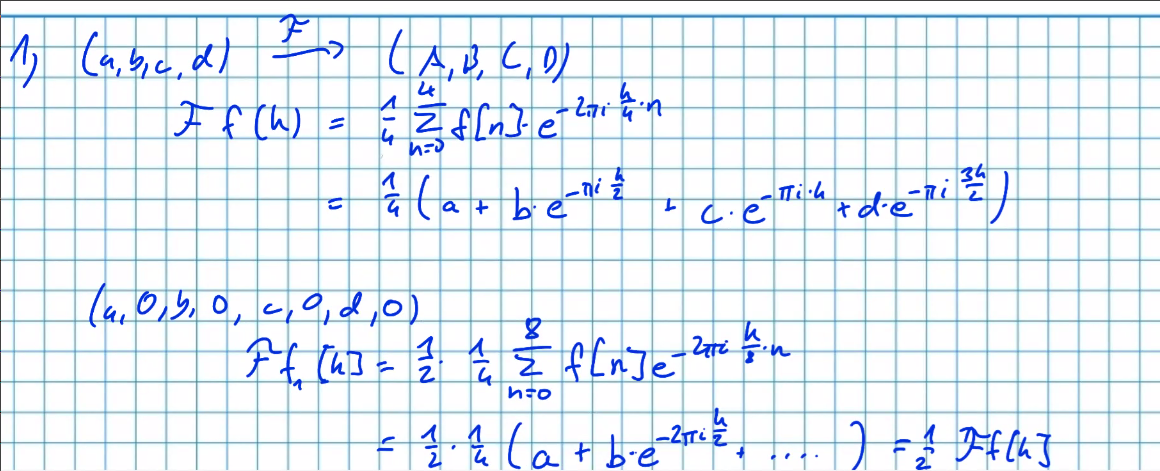 1) (a,b,c,d) \xrightarrow{\mathcal{F}} (A,B,C,D)
\mathcal{F} f(k) = \frac{1}{4} \sum_{n=0}^{4} f[n] \cdot e^{-2\pi i \cdot \frac{k}{4} \cdot n}
= \frac{1}{4} ( a + b \cdot e^{-\pi i \frac{k}{2}} + c \cdot e^{-\pi i \cdot k} + d \cdot e^{-\pi i \frac{3k}{2}} )
(a, 0, b, 0, c, 0, d, 0)
\mathcal{F} f_1 [k] = \frac{1}{2} \cdot \frac{1}{4} \sum_{n=0}^{8} f[n] e^{-2\pi i \frac{k}{8} \cdot n}
= \frac{1}{2} \cdot \frac{1}{4} ( a + b \cdot e^{-2\pi i \frac{k}{2}} + .... ) = \frac{1}{2} \mathcal{F} f[k]